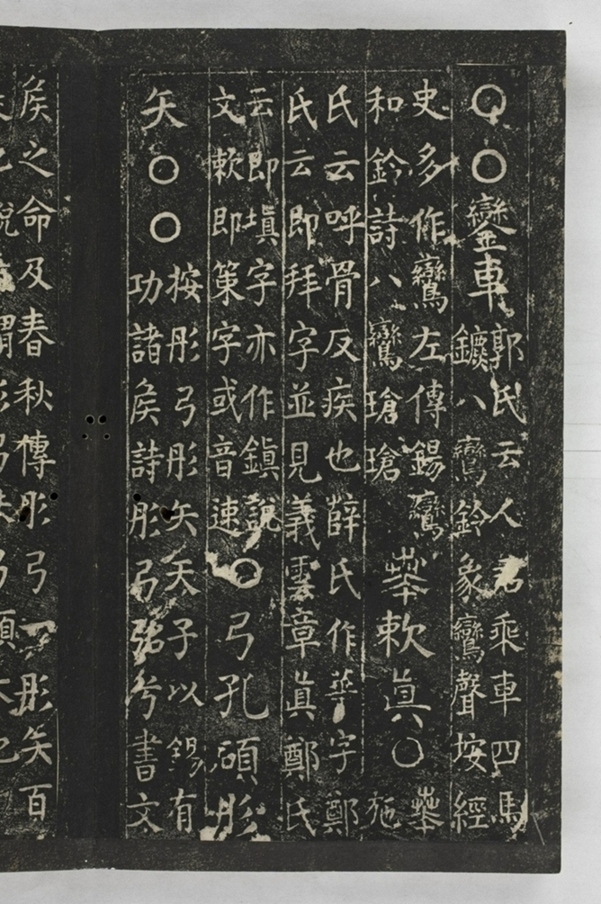 ○○鑾車
郭氏云人君乘車四馬
鑣八鸞鈴象鸞聲按經
史多作鸞左傳錫鸞
和鈴詩八鸞瑲瑲
𠦪欶眞○
𠦪
施
氏云呼骨反疾也薛氏作華字鄭
氏云即拜字並見義雲章眞鄭氏
云即塡字亦作鎭說
文欶即策字或音速
○弓孔碩彤
矢○○
按彤弓彤矢天子以錫有
功諸侯詩彤弓弨兮書文
侯之命及春秋傳彤弓一彤矢百